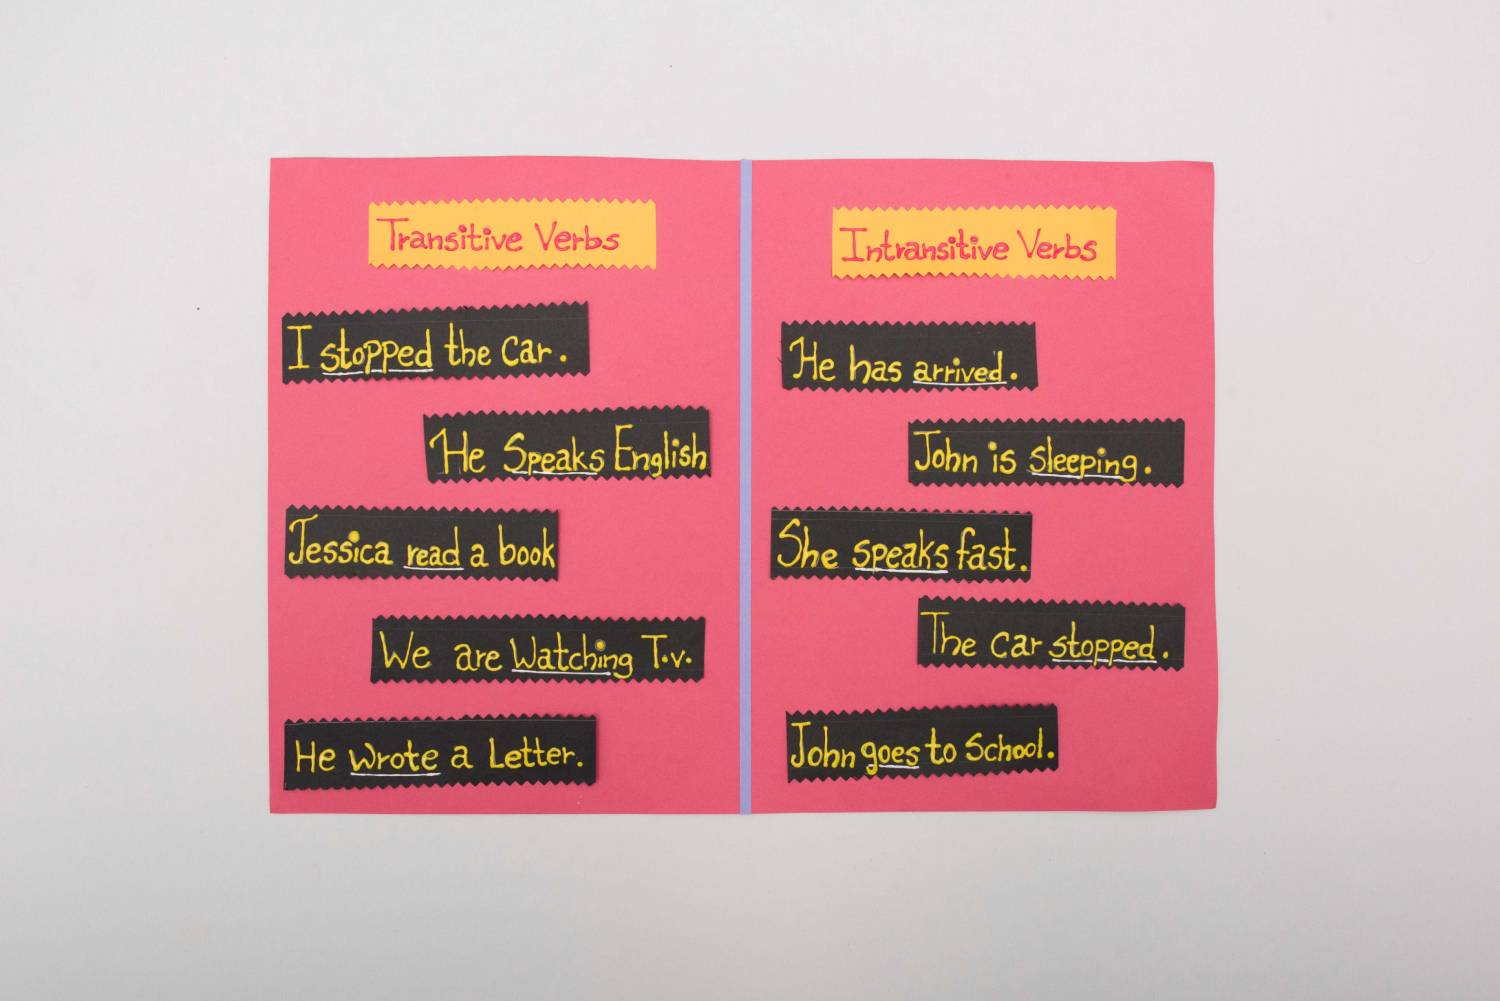 Transitive Verbs
I stopped the car.
He Speaks English
Jessica read a book
We are Watching T.v.
He wrote a Letter.
Intransitive Verbs
He has arrived.
John is sleeping.
She speaks fast.
The car stopped.
John goes to School.